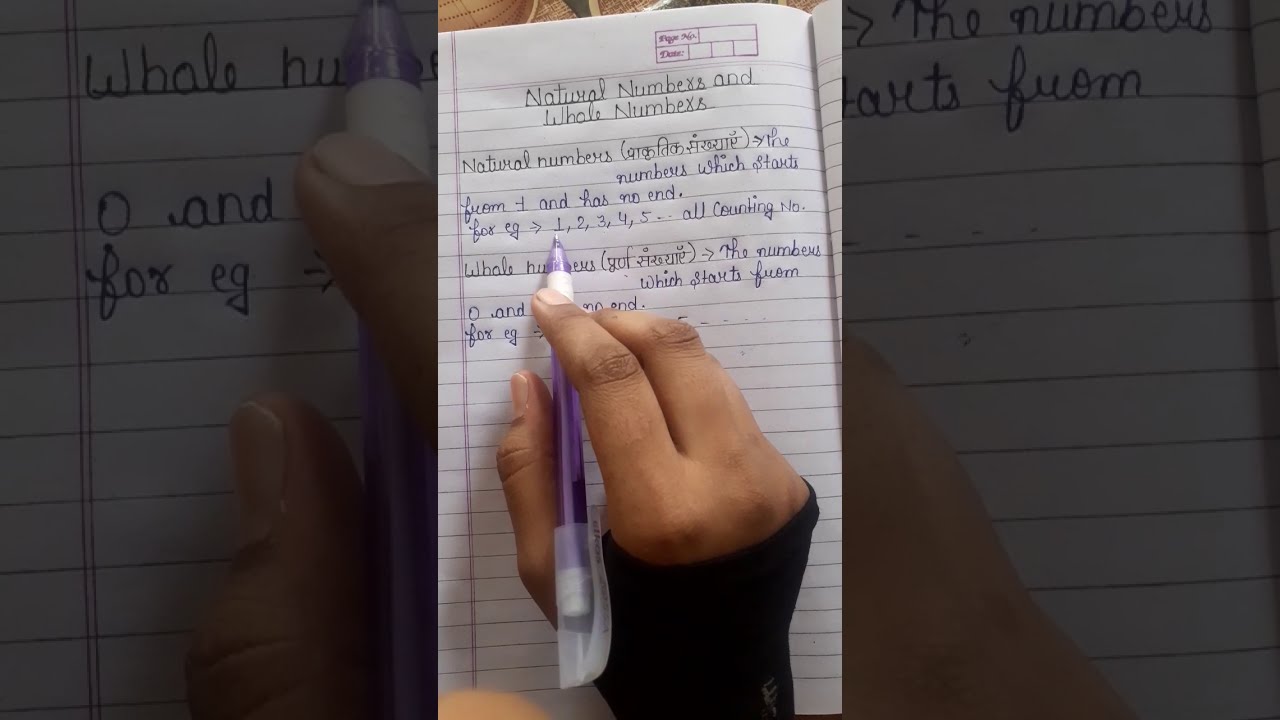 Page No.
Date:
Natural Numbers and
Whole Numbers
Natural numbers (प्राकृतिक संख्याएँ) → The
numbers which starts
from 1 and has no end.
for eg → 1, 2, 3, 4, 5 -- all Counting No.
Whole numbers (पूर्ण संख्याएँ) → The numbers
which starts from
0 and no end.
for eg → 5 - - - - -